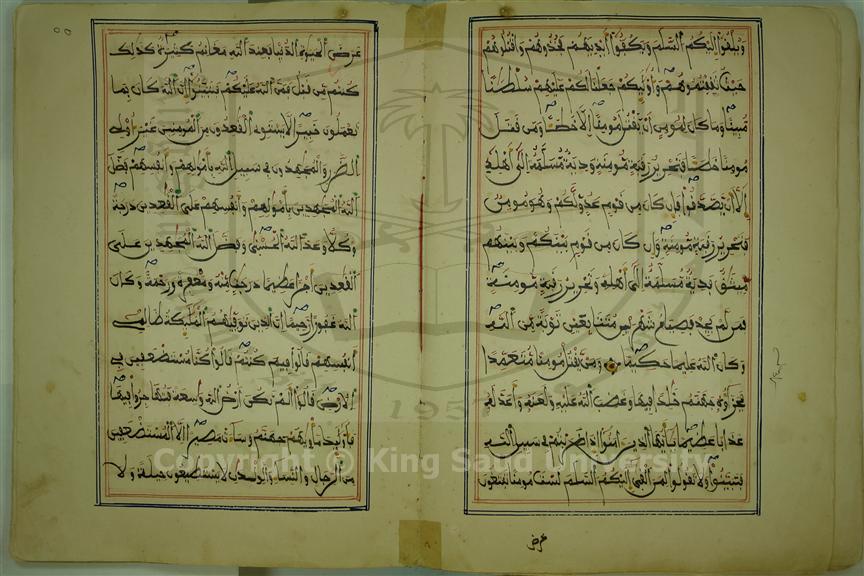 ويلقوا اليكم السلم ويكفوا أيديهم فخذوهم واقتلوهم
حيث ثقفتموهم وأوليكم جعلنا لكم عليهم سلطنا
مبينا وما كان لمومن أن يقتل مومنا الا خطا ومن قتل
مومنا خطا فتحرير رقبة مومنة ودية مسلمة الى أهله
الا أن يصدقوا فإن كان من قوم عدو لكم وهو مومن
فتحرير رقبة مومنة وإن كان من قوم بينكم وبينهم
ميثق فدية مسلمة الى أهله وتحرير رقبة مومنة
فمن لم يجد فصيام شهرين متتابعين توبة من الله
وكان الله عليما حكيما ومن يقتل مومنا متعمدا
فجزاوه جهنم خلدا فيها وغضب الله عليه ولعنه وأعد له
عذابا عظيما يأيها الذين امنوا إذا ضربتم في سبيل الله
فتبينوا ولا تقولوا لمن ألقى إليكم السلم لست مومنا تبتغون
عرض
عرض الحيوة الدنيا فعند الله مغانم كثيرة كذلك
كنتم من قبل فمن الله عليكم فتبينوا إن الله كان بما
تعملون خبيرا لا يستوي القعدون من المومنين غير أولي
الضرر والمجهدون في سبيل الله بأمولهم وأنفسهم فضل
الله المجهدين بأمولهم وأنفسهم على القعدين درجة
وكلا وعد الله الحسنى وفضل الله المجهدين على
القعدين أجرا عظيما درجت منه ومغفرة ورحمة وكان
الله غفورا رحيما إن الذين توفيهم المليكة ظالمي
أنفسهم قالوا فيم كنتم قالوا كنا مستضعفين في
الارض قالوا ألم تكن أرض الله وسعة فتهاجروا فيها
فأوليك مأويهم جهنم وساءت مصيرا الا المستضعفين
من الرجال والنساء والولدن لا يستطيعون حيلة ولا
1957
Copyright © King Saud University